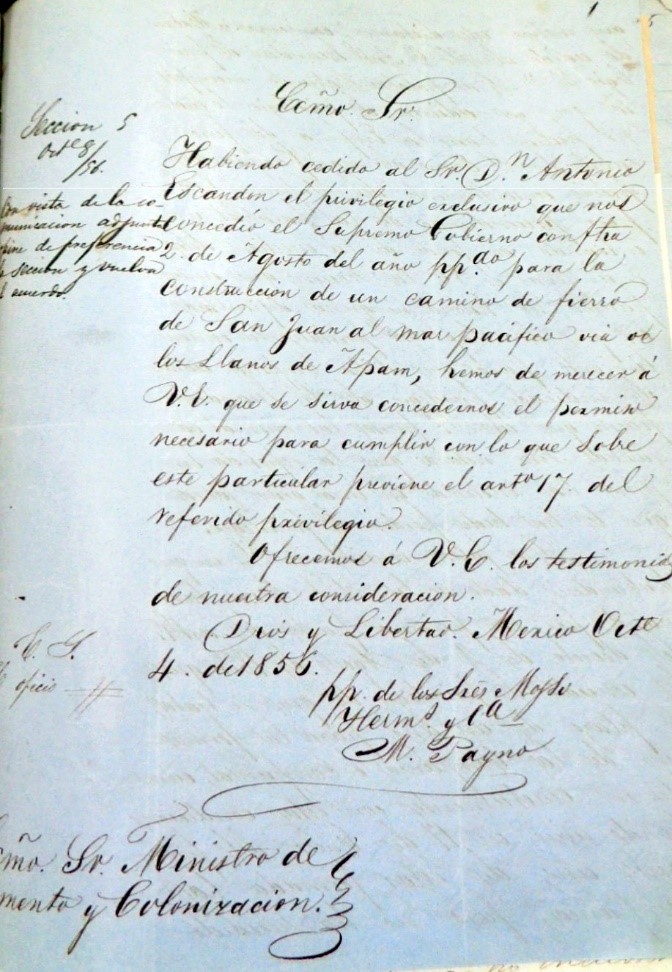 1
5
Ecmo. Sr.
Seccion 5
Octe 8/
/56.
Con vista de la co-
municacion adjunta
de preferencia
seccion y vuelva
acuerdo.
Habiendo cedido al Sr. D.n Antonio
Escandon el privilegio exclusivo que nos
concedió el Supremo Gobierno con fha
2. de Agosto del año pp.do para la
construccion de un camino de fierro
de San Juan al mar pacifico via de
los Llanos de Apam, hemos de merecer á
V.E. que se sirva concedernos el permiso
necesario para cumplir con lo que sobre
este particular previene el arto 17. del
referido privilegio.
Ofrecemos á V.E. los testimonios
de nuestra consideracion.
Dios y Libertad. Mexico Octe
4. de 1856.
oficio
pp. de los Sres Mosso
Herms y Ca
M. Payno
Ecmo. Sr. Ministro de
mento y Colonizacion.